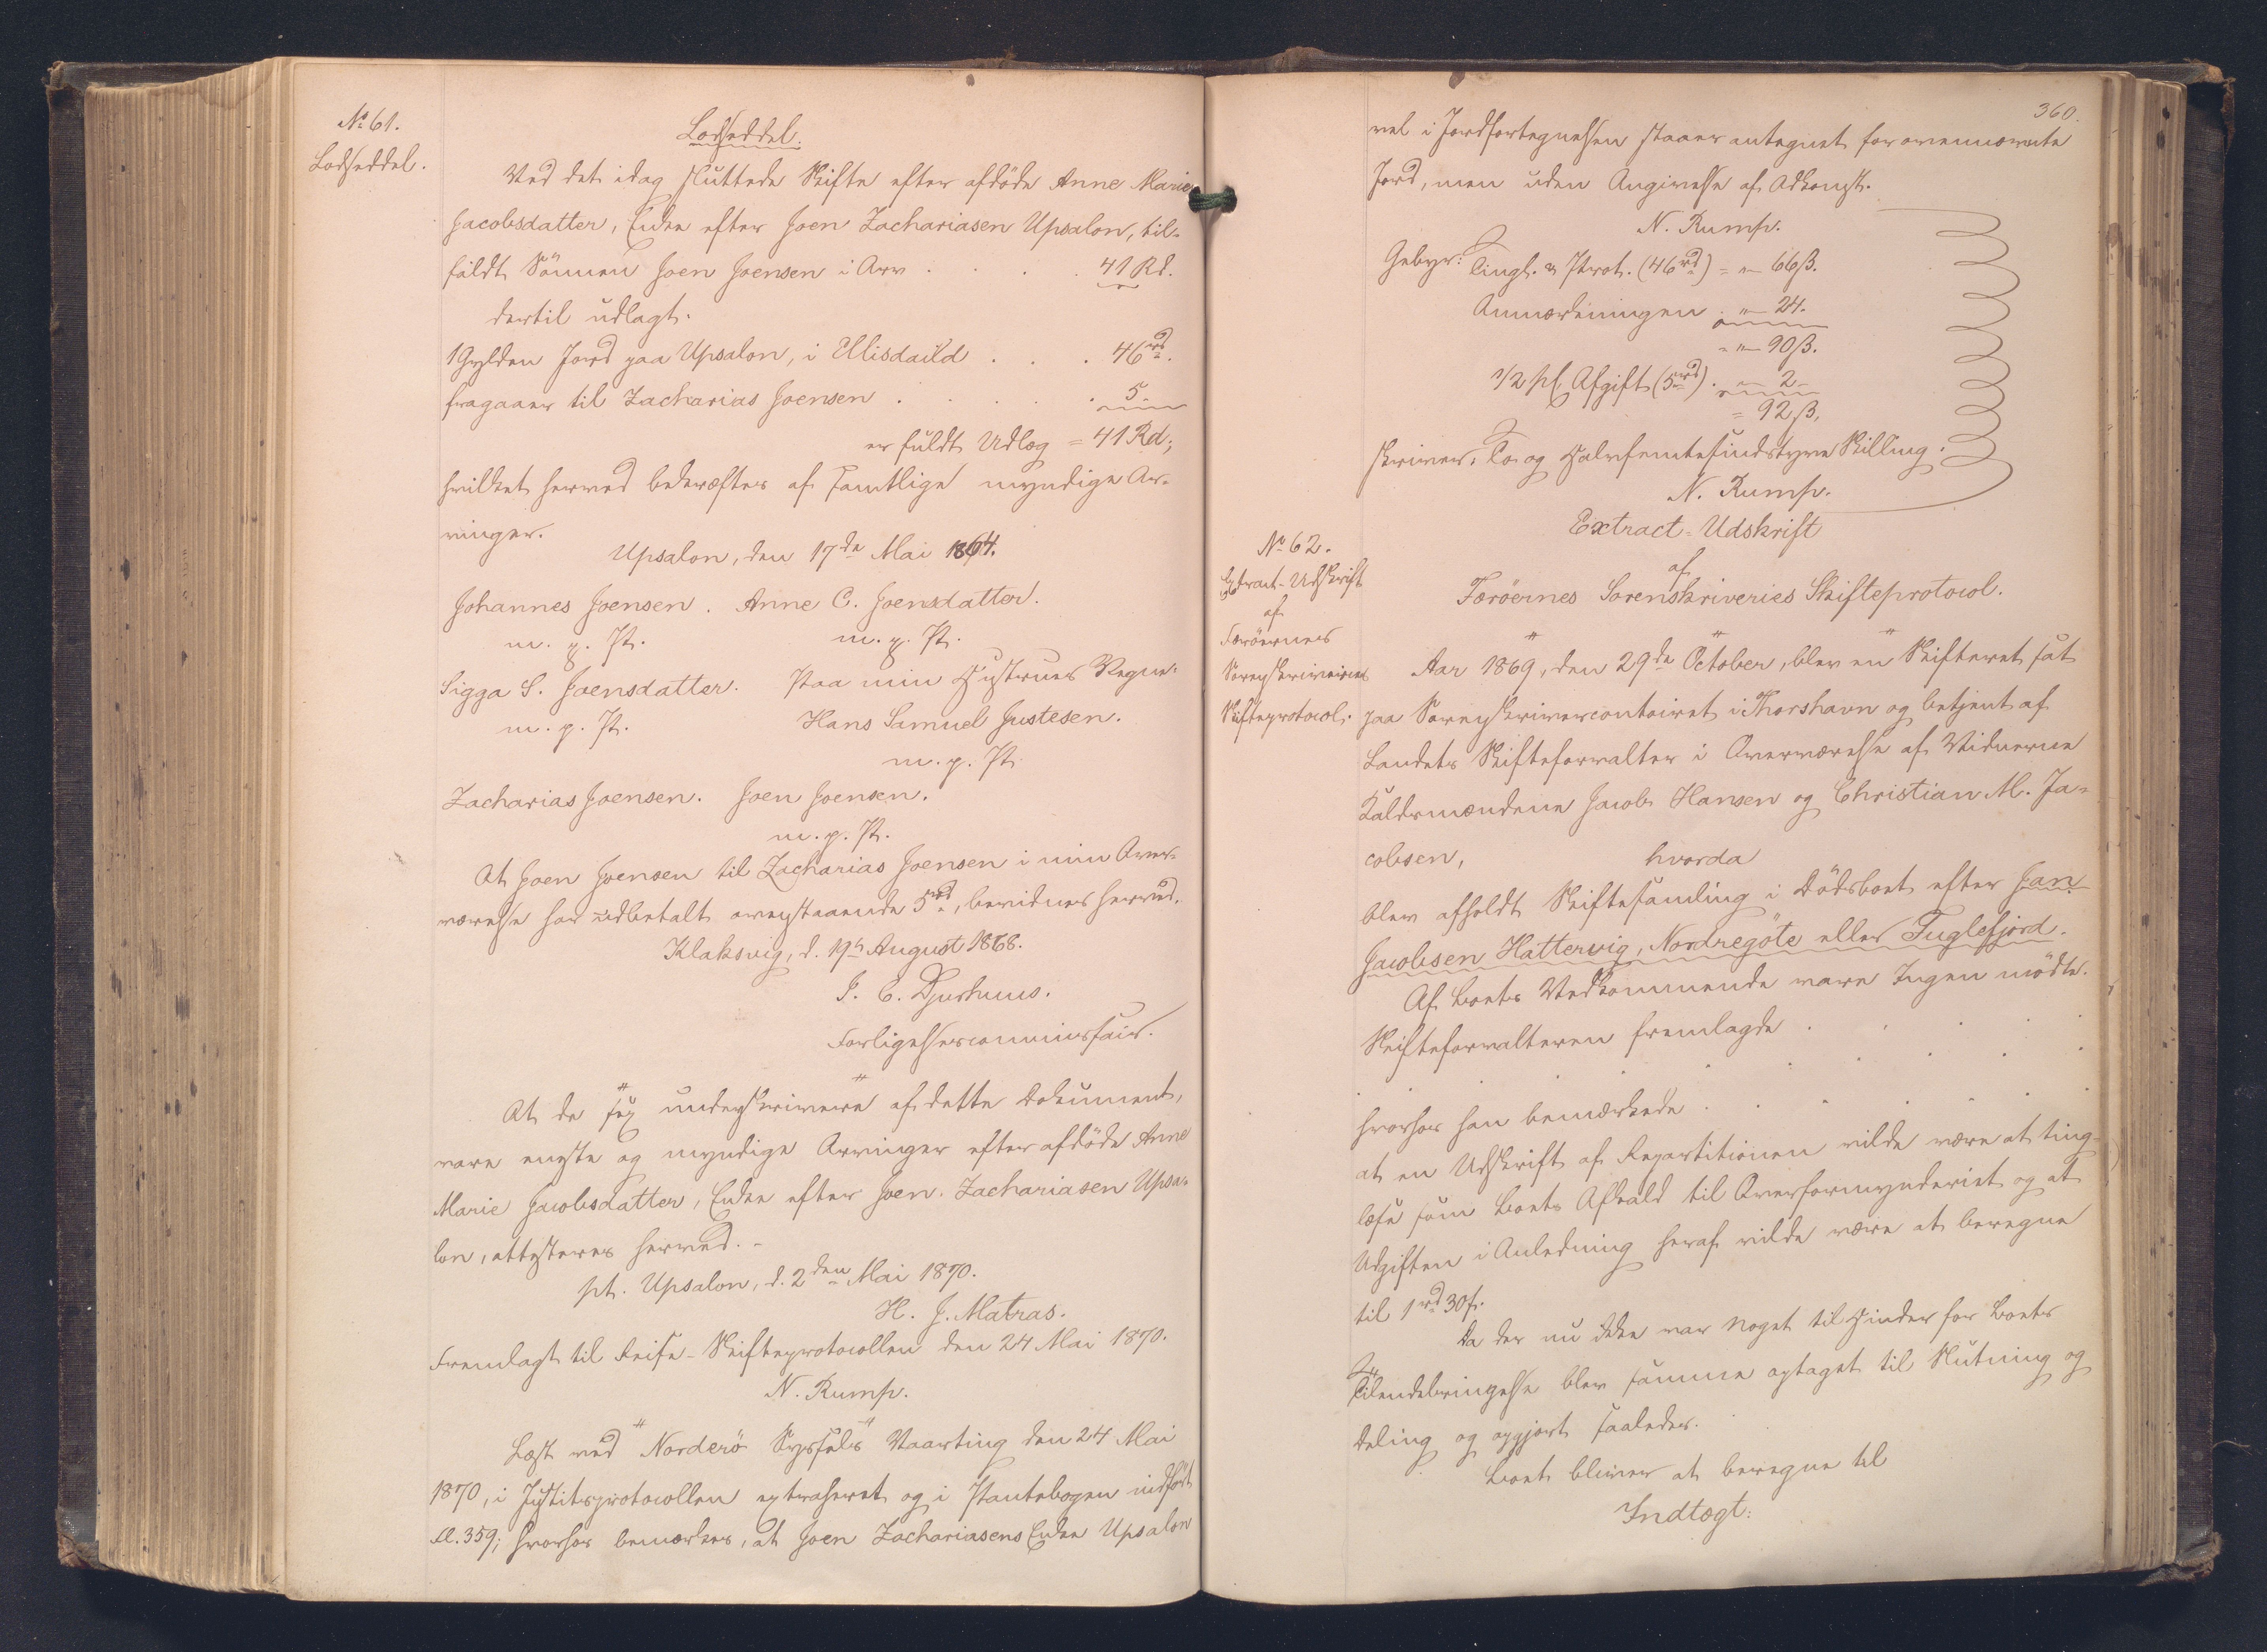 No 61.
Lodseddel.
Lodseddel.
Ved det idag sluttede Skifte efter afdöde Anne Marie
Jacobsdatter, Enke efter Joen Zachariasen Upsalon, til-
faldt Sönnen Joen Joensen i Arv . . . . 41 Rd.
dertil udlagt.
1 Gylden Jord paa Upsalon, i Ellisdaild . . . 46 rd.
fragaaer til Zacharias Joensen . . . . . 5 -
er fuldt Udlæg = 41 Rd;
hvilket herved bekræftes af samtlige myndige Ar-
vinger.
Upsalon, den 17de Mai 1864.
Johannes Joensen. Anne C. Joensdatter.
m. p. P. m. p. P.
Sigga S. Joensdatter. Paa min Hustrues Vegne:
m. p. P. Hans Samuel Justesen.
m. p. P.
Zacharias Joensen. Joen Joensen.
m. p. P.
At Joen Joensen til Zacharias Joensen i min Over-
værelse har udbetalt ovenstaaende 5 rd, bevidnes herved.
Klaksvig, d. 19de August 1868.
J. C. Djurhuus.
Forligelsescommissair.
At de sex underskrivere af dette Dokument,
vare eneste og myndige Arvinger efter afdöde Anne
Marie Jacobsdatter, Enke efter Joen Zachariasen Upsa-
lon, attesteres herved. -
pt. Upsalon, d. 2den Mai 1870.
H. J. Matras.
Fremlagt til Reise-Skifteprotocollen den 24 Mai 1870.
N. Rump.
Læst ved Norderö Syssels Vaarting den 24 Mai
1870, i Justitsprotocollen extraheret og i Pantebogen indfört
fl. 359; hvorhos bemærkes, at Joen Zachariasens Enke Upsalon
360.
vel i Jordfortegnelsen staaer antegnet for ovennævnte
Jord, men uden Angivelse af Adkomst.
N. Rump.
Gebyr: Tingl. & Prot. (46 rd) = " 66 ß.
Anmærkningen . " 24.
" " 90 ß.
1/2 pC Afgift (5 rd) . " 2 -
= 92 ß,
skriver, To og Halvfemtesindstyve Skilling.
N. Rump.
No 62.
Extract-Udskrift
af
Færöernes
Sorenskriveries
Skifteprotocol.
Extract-Udskrift
af
Færöernes Sorenskriveries Skifteprotocol.
Aar 1869, den 29de October, blev en Skifteret sat
paa Sorenskrivercontoiret i Thorshavn og betjent af
Landets Skifteforvalter i Overværelse af Vidnerne
Kaldsmændene Jacob Hansen og Christian M. Ja-
cobsen, hvorda
blev afholdt Skiftesamling i Dödsboet efter Jan
Jacobsen Hattervig, Nordregöte eller Fuglefjord.
Af Boets Vedkommende vare Ingen mödte.
Skifteforvalteren fremlagde . . . .
. . . . . . . .
hvorhos han bemærkede . . . . . .
at en Udskrift af Repartitionen vilde være at ting-
læse som Boets Afkald til Overformynderiet og at
Udgiften i Anledning heraf vilde være at beregne
til 1 rd 30 ß.
Da der nu ikke var noget til Hinder for Boets
Tilendebringelse blev samme optaget til Slutning og
Deling og opgjort saaledes.
Boet bliver at beregne til
Indtægt: